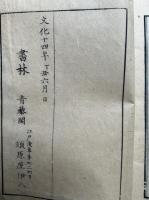 文化十四年丁丑六月
書林
青藜閣
江戸浅草茅町二丁目
須原屋伊八